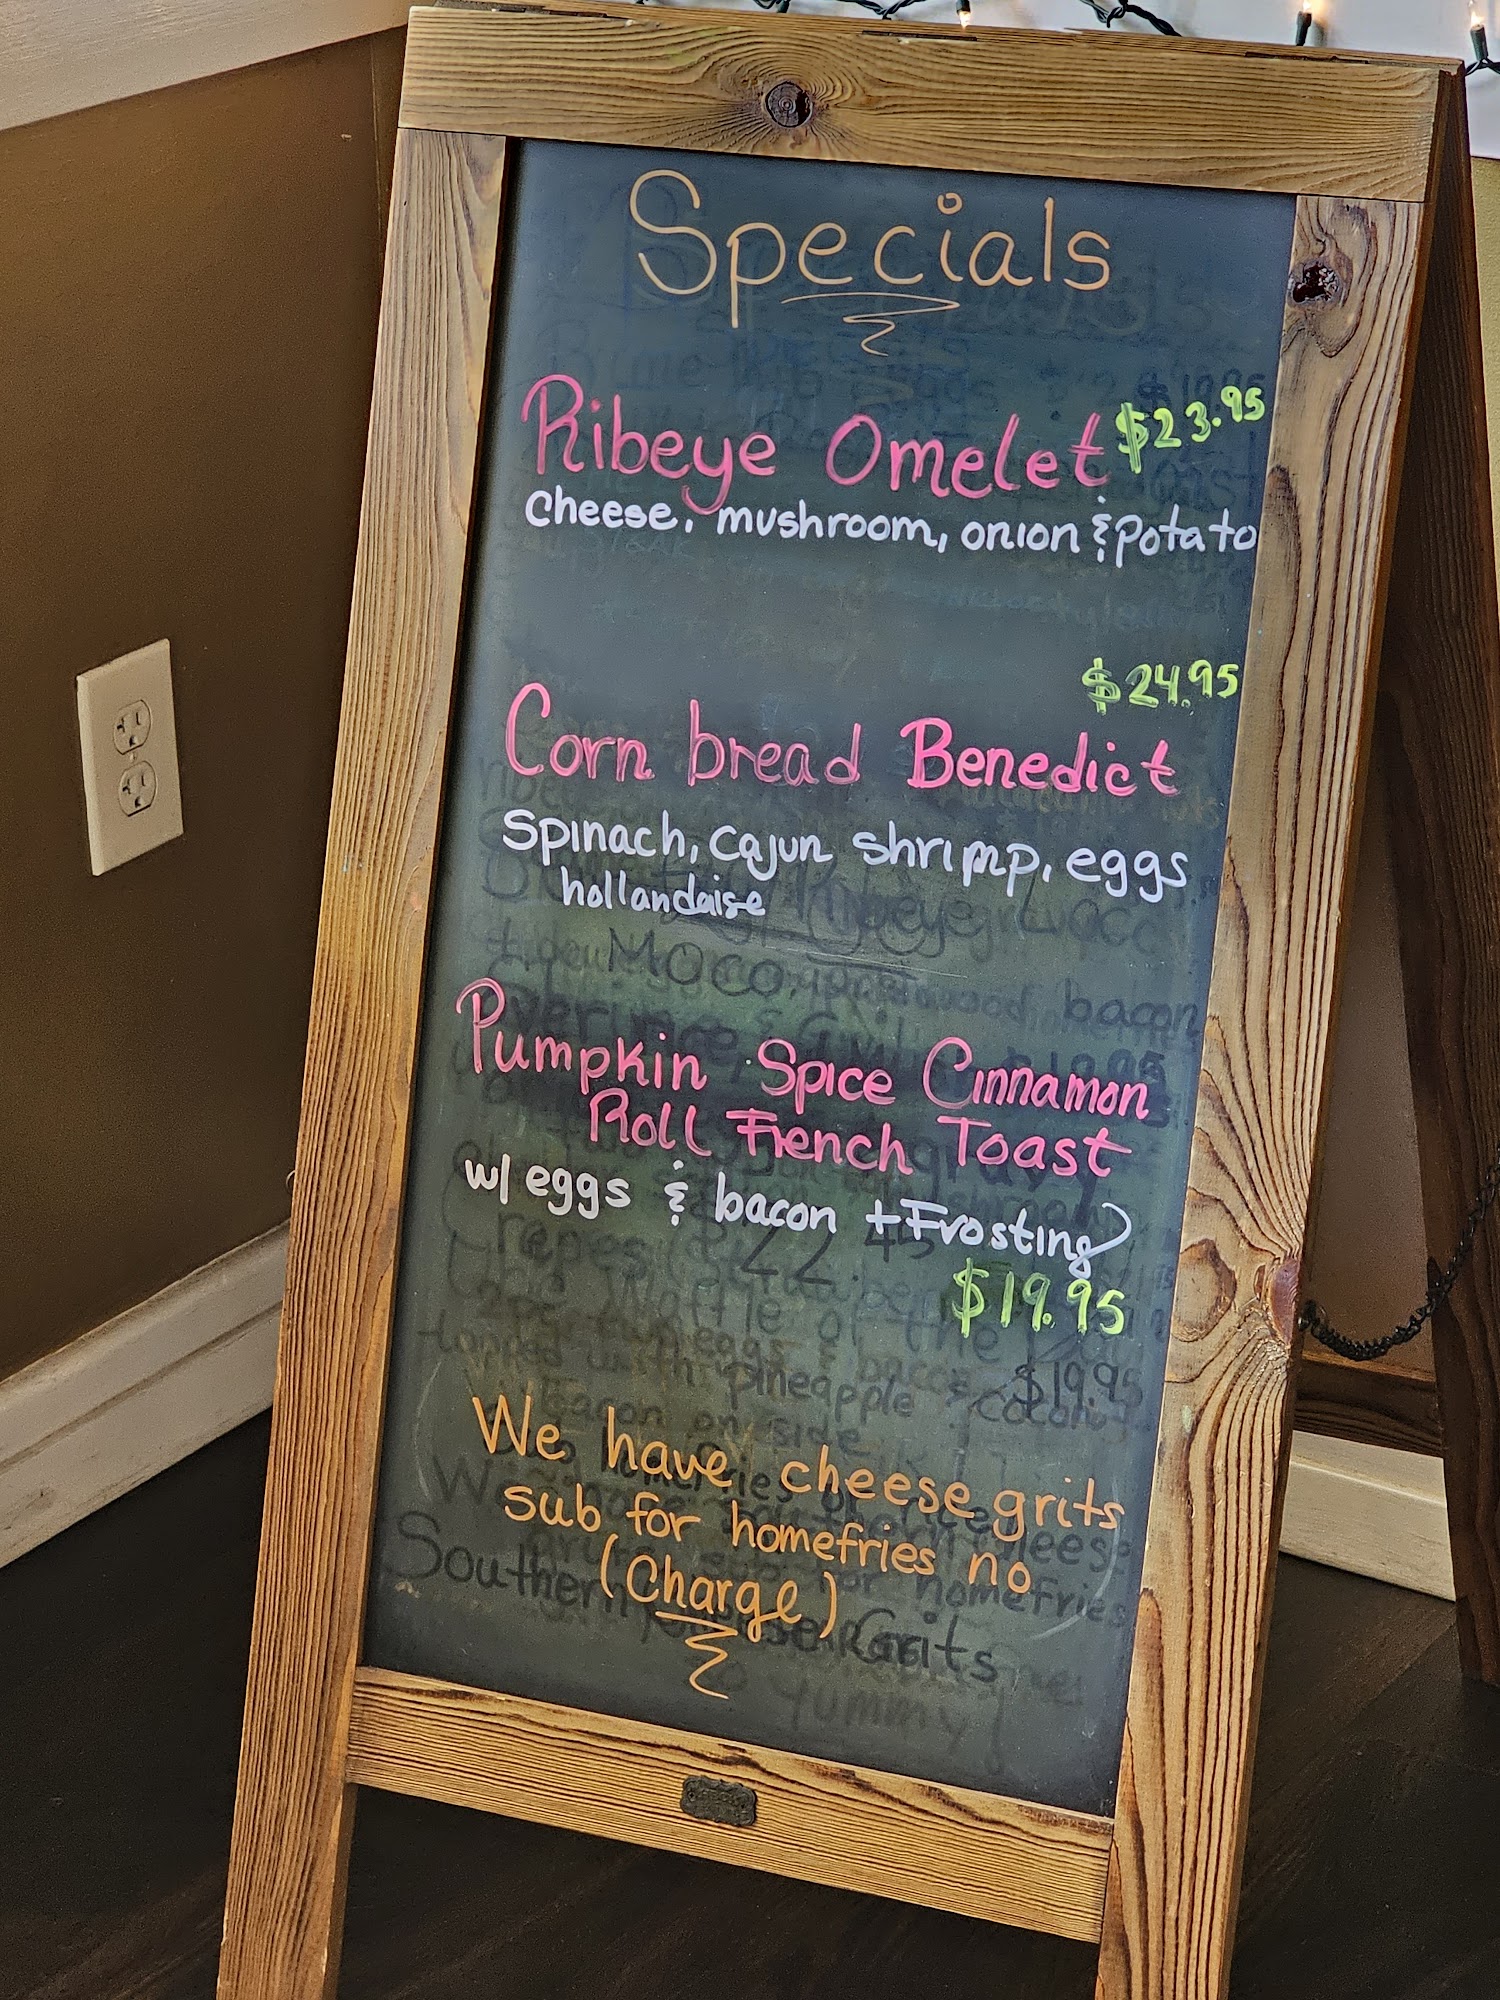 Specials
Ribeye Omelet $23.95
cheese, mushroom, onion & potato
$24.95
Corn bread Benedict
spinach, cajun shrimp, eggs
hollandaise
Pumpkin Spice Cinnamon
Roll French Toast
w/ eggs & bacon + Frosting
$19.95
We have cheese grits
sub for homefries no
(Charge)